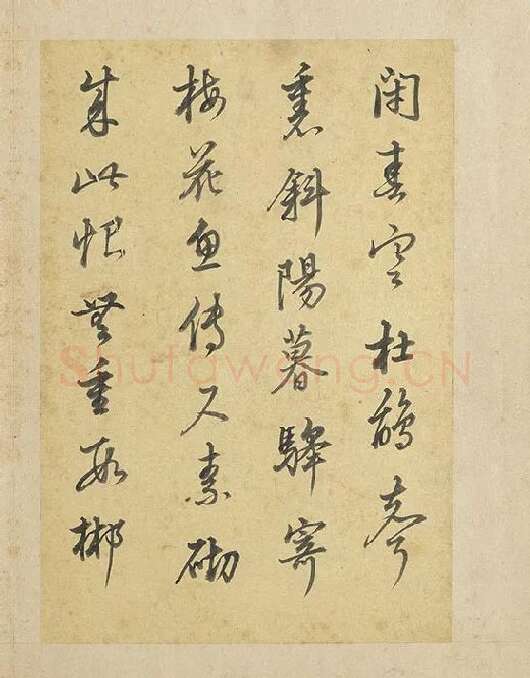 閉春寒杜鵑聲
裏斜陽暮驛寄
梅花魚傳尺素砌
成此恨無重數郴
Shufawang.CN